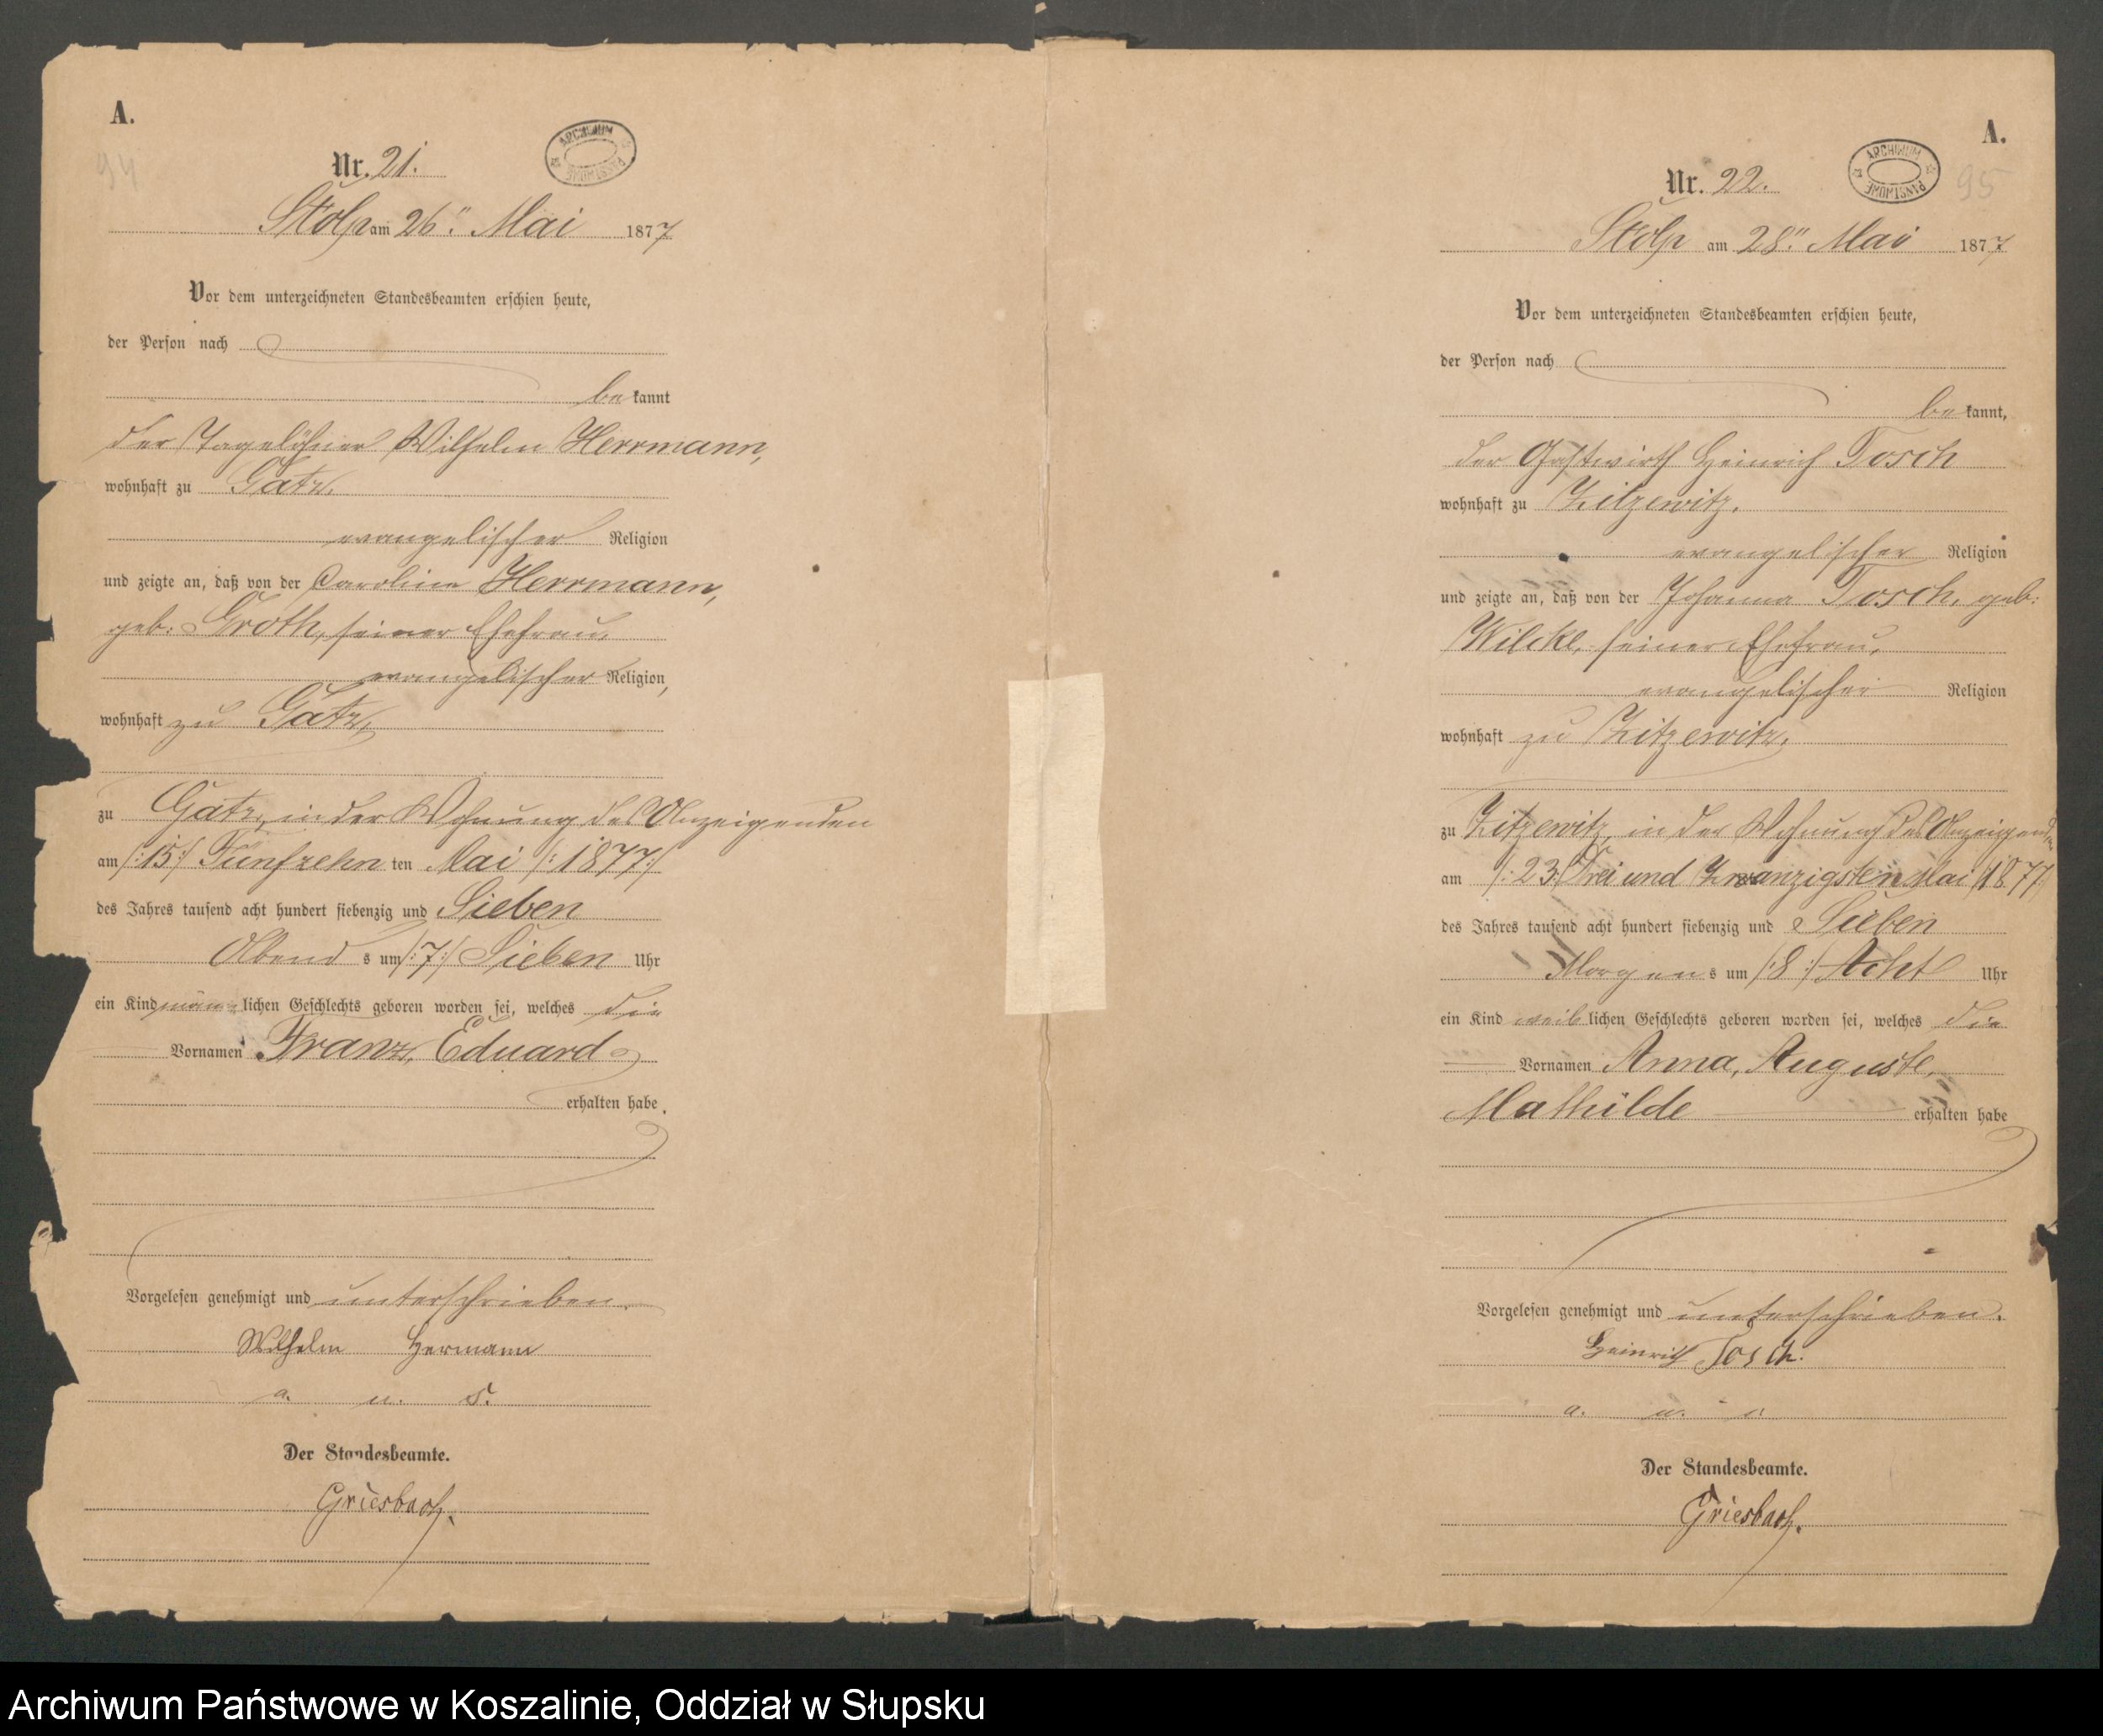 A.
94
Nr. 21.
ARCHIWUM PAŃSTWOWE
Stolp am 26ten Mai 1877
Vor dem unterzeichneten Standesbeamten erschien heute,
der Person nach
bekannt
der Tagelöhner Wilhelm Herrmann,
wohnhaft zu Gatz,
evangelischer Religion
und zeigte an, daß von der Caroline Herrmann,
geb: Groth, seiner Ehefrau,
evangelischer Religion,
wohnhaft zu Gatz,
zu Gatz, in der Wohnung des Anzeigenden
am /:15:/ Fünfzehn ten Mai /:1877:/
des Jahres tausend acht hundert siebenzig und Sieben
Abend s um /:7:/ Sieben Uhr
ein Kind männlichen Geschlechts geboren worden sei, welches die
Vornamen Franz, Eduard
erhalten habe.
Vorgelesen genehmigt und unterschrieben.
Wilhelm Hermann
a. u. s.
Der Standesbeamte.
Griesbach.
A.
95
Nr. 22.
ARCHIWUM PAŃSTWOWE
Stolp am 28ten Mai 1877
Vor dem unterzeichneten Standesbeamten erschien heute,
der Person nach
bekannt,
der Gastwirth Heinrich Tosch
wohnhaft zu Zitzewitz,
evangelischer Religion
und zeigte an, daß von der Johanna Tosch, geb:
Wilcke, seiner Ehefrau,
evangelischer Religion
wohnhaft zu Zitzewitz,
zu Zitzewitz, in der Wohnung des Anzeigenden
am /:23:/ Drei und Zwanzigsten Mai /:1877:/
des Jahres tausend acht hundert siebenzig und Sieben
Morgen s um /:8:/ Acht Uhr
ein Kind weiblichen Geschlechts geboren worden sei, welches die
Vornamen Anna, Auguste,
Mathilde erhalten habe
Vorgelesen genehmigt und unterschrieben.
Heinrich Tosch.
a. u. s.
Der Standesbeamte.
Griesbach.
Archiwum Państwowe w Koszalinie, Oddział w Słupsku